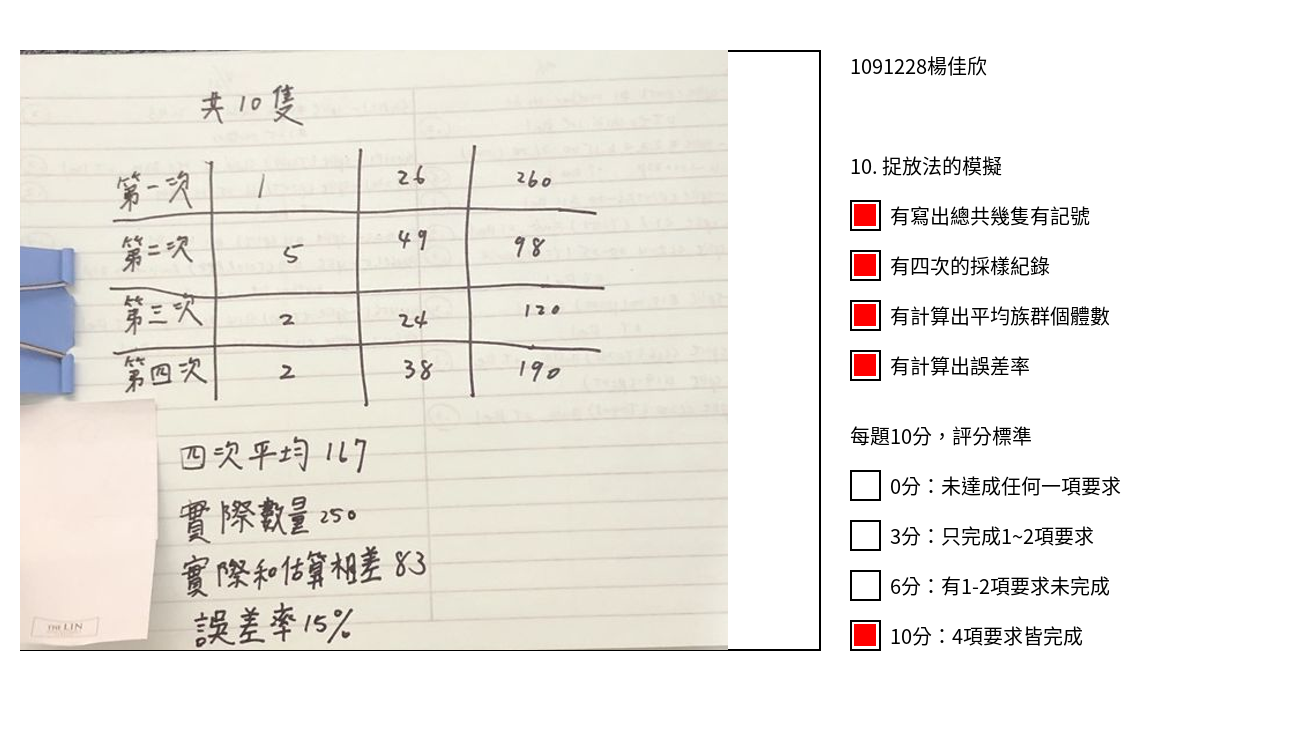 共10隻
第一次 1 26 260
第二次 5 49 98
第三次 2 24 120
第四次 2 38 190
四次平均 167
實際數量 250
實際和估算相差 83
誤差率 15%
THE LIN
1091228楊佳欣
10. 捉放法的模擬
有寫出總共幾隻有記號
有四次的採樣紀錄
有計算出平均族群個體數
有計算出誤差率
每題10分，評分標準
0分：未達成任何一項要求
3分：只完成1~2項要求
6分：有1-2項要求未完成
10分：4項要求皆完成